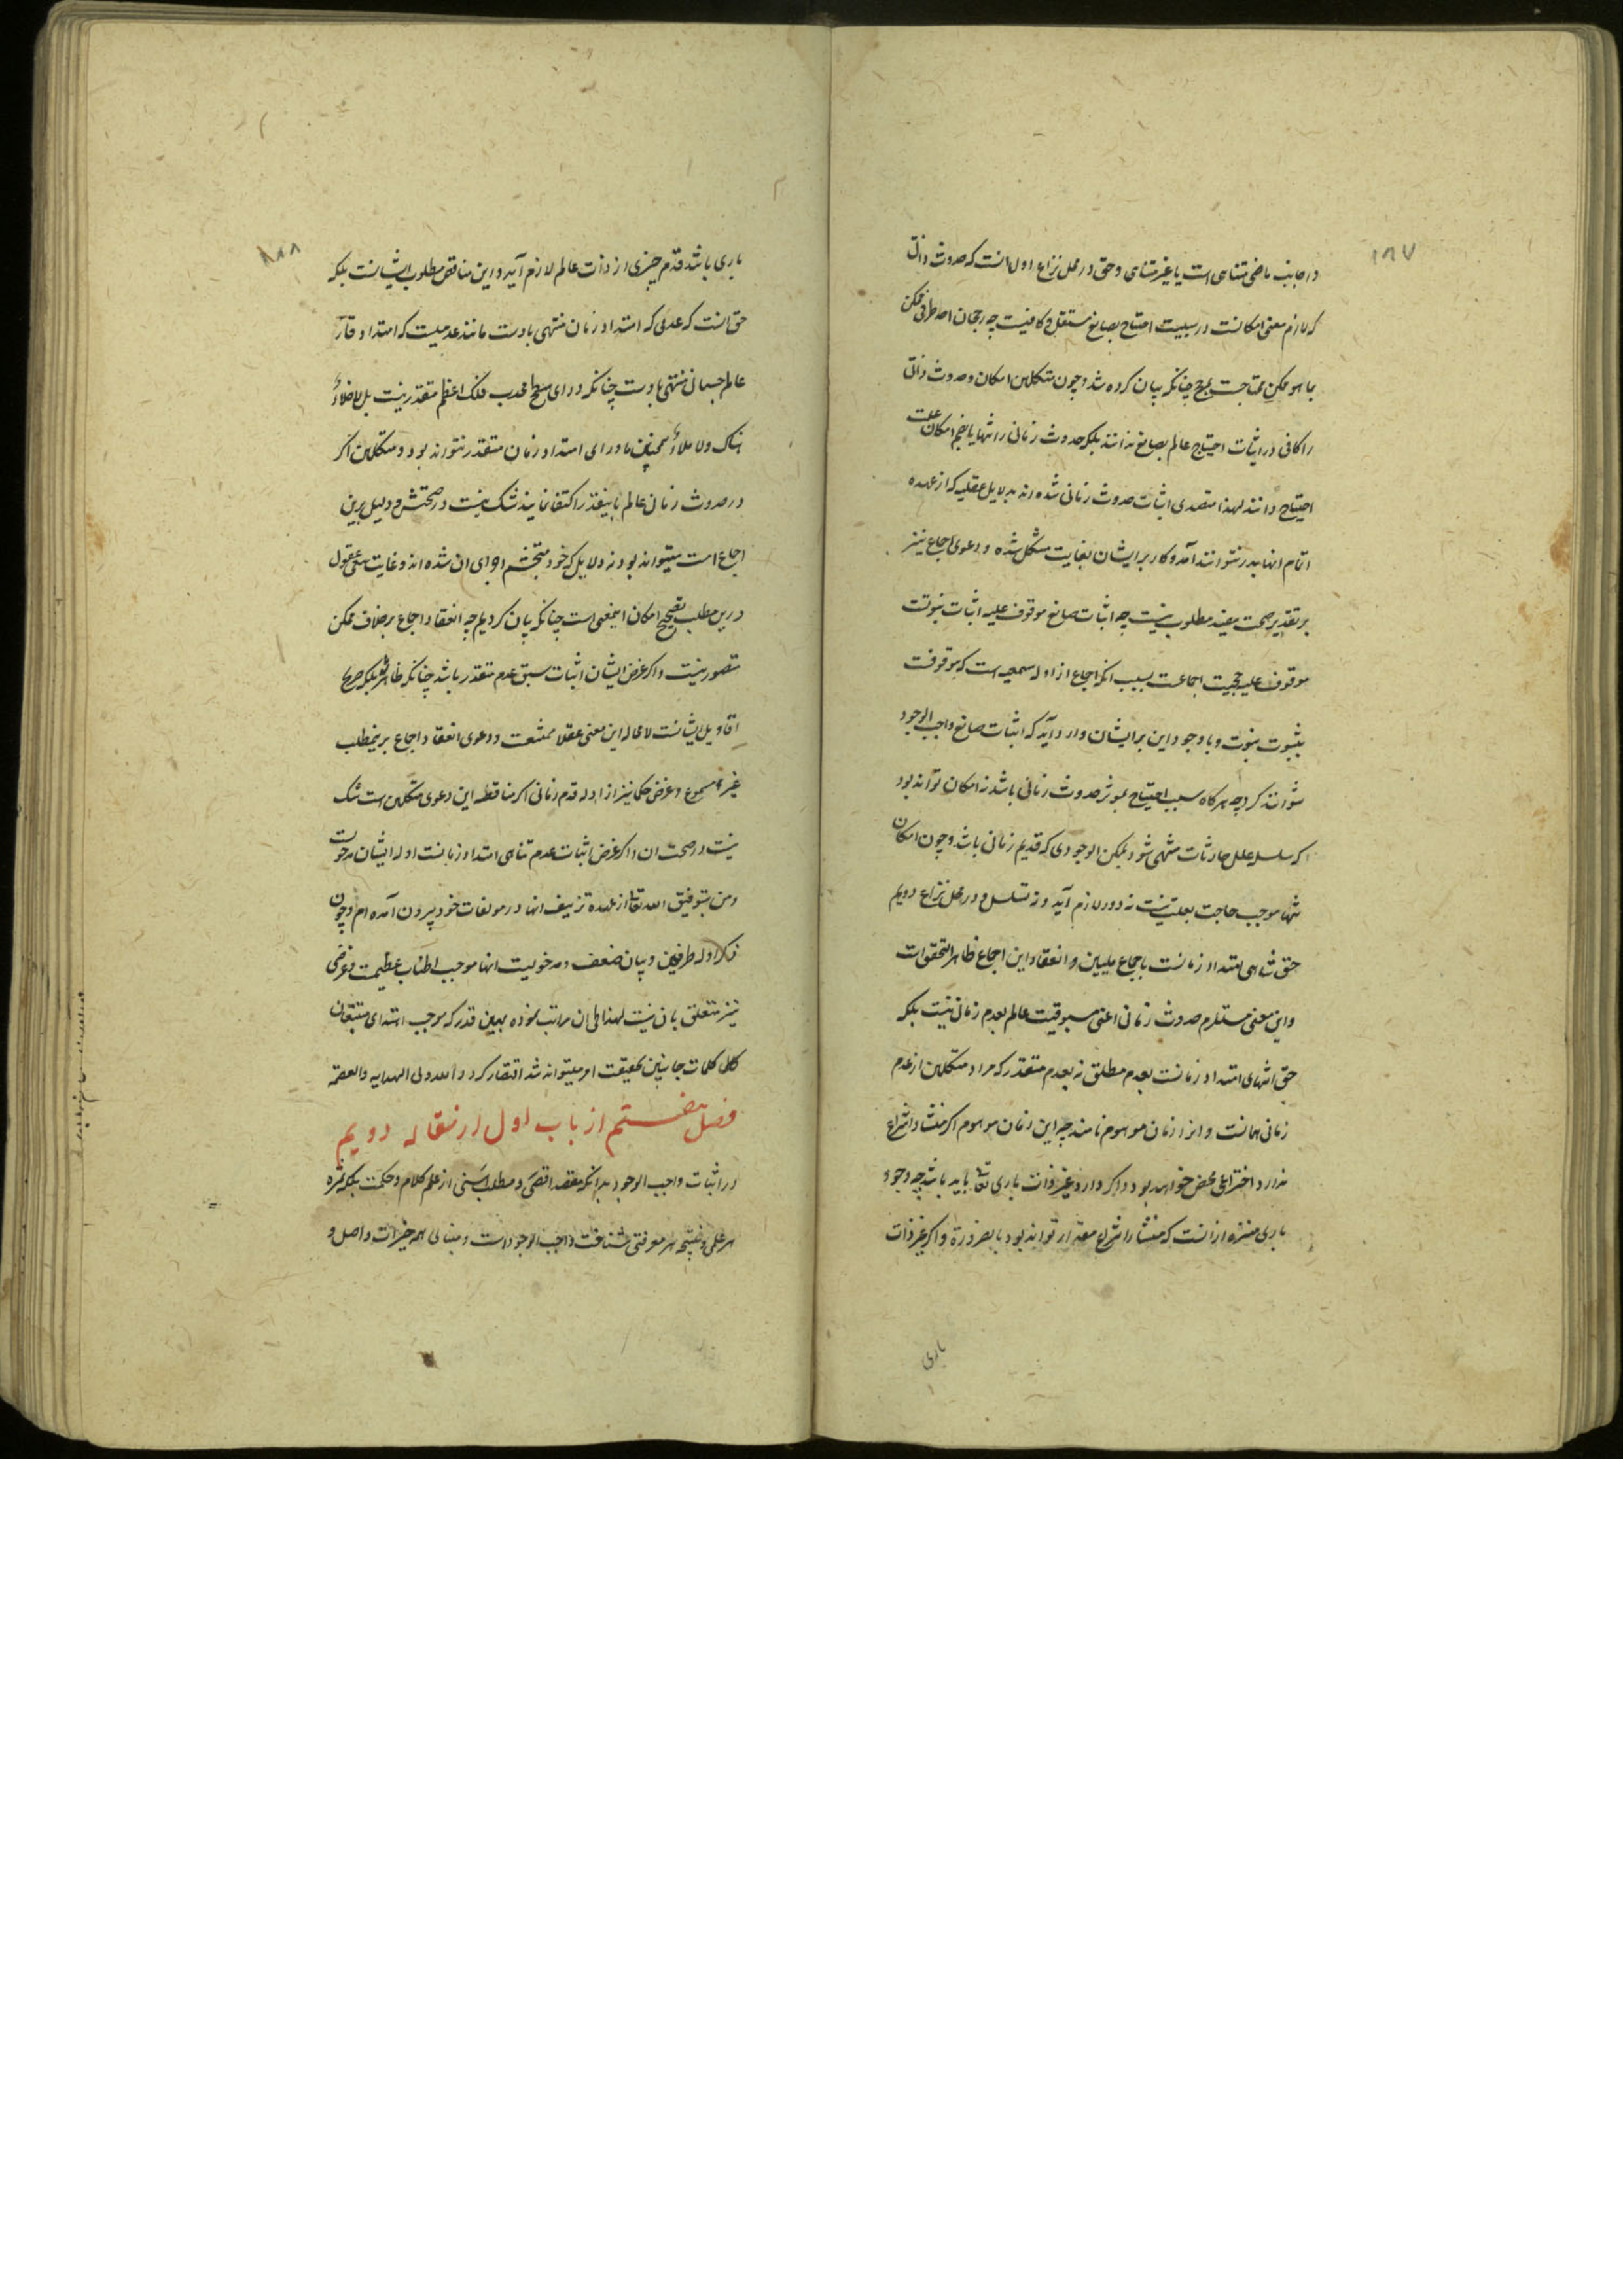 ۱۸۷
در جانب ماضی متناهی است یا غیر متناهی و حق در محل نزاع اول آنست که حدوث ذاتی
که لازم معنی امکانست در سببیت احتیاج بصانع مستقل و کافیست چه رجحان احد طرفی ممکن
بما هو ممکن محتاجست بمرجح چنانکه بیان کرده شد و چون متکلمین امکان و حدوث ذاتی
را کافی در اثبات احتیاج عالم بصانع ندانند بلکه حدوث زمانی را تنها یا بضم امکان علت
احتیاج دانند لهذا متصدی اثبات حدوث زمانی شده‌اند بدلایل عقلیه که از عهده
اتمام انها بدر نتوانند آمد و کار بر ایشان بغایت مشکل شده و دعوی اجماع نیز
بر تقدیر صحت مفید مطلوب نیست چه اثبات صانع موقوف علیه اثبات نبوتست
موقوف علیه حجیت اجماعست بسبب انکه اجماع از ادله سمعیه است که موقوفست
بثبوت نبوت و با وجود این بر ایشان وارد آید که اثبات صانع واجب الوجود
نتوانند کرد چه هرگاه سبب احتیاج بموثر حدوث زمانی باشد نه امکان تواند بود
که سلسله علل حادثات منتهی شود بممکن الوجودی که قدیم زمانی باشد و چون امکان
تنها موجب حاجت بعلت نیست نه دور لازم آید و نه تسلسل و در محل نزاع دویم
حق تناهی امتداد زمانست باجماع ملیین و انعقاد این اجماع ظاهر التحقق است
و این معنی مستلزم حدوث زمانی اعنی مسبوقیت عالم بعدم زمانی نیست بلکه
حق انتهای امتداد زمانست بعدم مطلق نه بعدم متقدر که مراد متکلمین از عدم
زمانی همانست و انرا زمان موهوم نامند چه این زمان موهوم اگر منشاء انتزاع
ندارد اختراعی محض خواهد بود و اگر دارد غیر ذات باری تعالی باید باشد چه وجود
باری منزه از انست که منشاء انتزاع مقدار تواند بود بالضرورة و اگر غیر ذات
باری
۱۸۸
باری باشد قدم چیزی از ذات عالم لازم آید و این مناقض مطلوب ایشانست بلکه
حق آنست که عدمی که امتداد زمان منتهی بادست مانند عدمیست که امتداد قار
عالم جسمانی منتهی بادست چنانکه ورای سطح محدب فلک اعظم متقدر نیست بل لاخلاء
هناک ولا ملاء همچنین ماورای امتداد زمان متقدر نتواند بود و متکلمین اگر
در حدوث زمانی عالم باینقدر اکتفا نمایند شک نیست در صحتش و دلیل برین
اجماع امت میتواند بود نه دلایلی که خود متجشم ادای ان شده‌اند و غایت سعی عقول
درین مطلب تصحیح امکان اینمعنی است چنانکه بیان کردیم چه انعقاد اجماع بر خلاف ممکن
متصور نیست و اگر غرض ایشان اثبات سبق عدم متقدر باشد چنانکه ظاهر بلکه صریح
اقاویل ایشانست لا محاله این معنی عقلا ممتنعست و دعوی انعقاد اجماع برینمطلب
غیر مسموع و غرض حکما نیز از ادله قدم زمانی اگر مناقضه این دعوی متکلمین است شک
نیست در صحت ان و اگر غرض اثبات عدم تناهی امتداد زمانست ادله ایشان مدخولست
و من بتوفیق الله تعالی از عهده تزییف انها در مولفات خود بیرون آمده‌ام و چون
ذکر ادله طرفین و بیان ضعف و مدخولیت انها موجب اطناب عظیمست و غرضی
نیز متعلق بان نیست لهذا طی ان مراتب نموده بهمین قدر که موجب اهتدای متتبعان
کلی کلمات جانبین بحقیقت امر میتواند شد اقتصار کرد و الله ولی الهدایه و العصمه
فصل هشتم از باب اول از مقاله دویم
در اثبات واجب الوجود بدانکه مقصد اقصی و مطلب اسنی از علم کلام و حکمت بلکه ثمره
هر علمی و نتیجه هر معرفتی شناخت واجب الوجود است و مبنای همه خیرات و اصل و